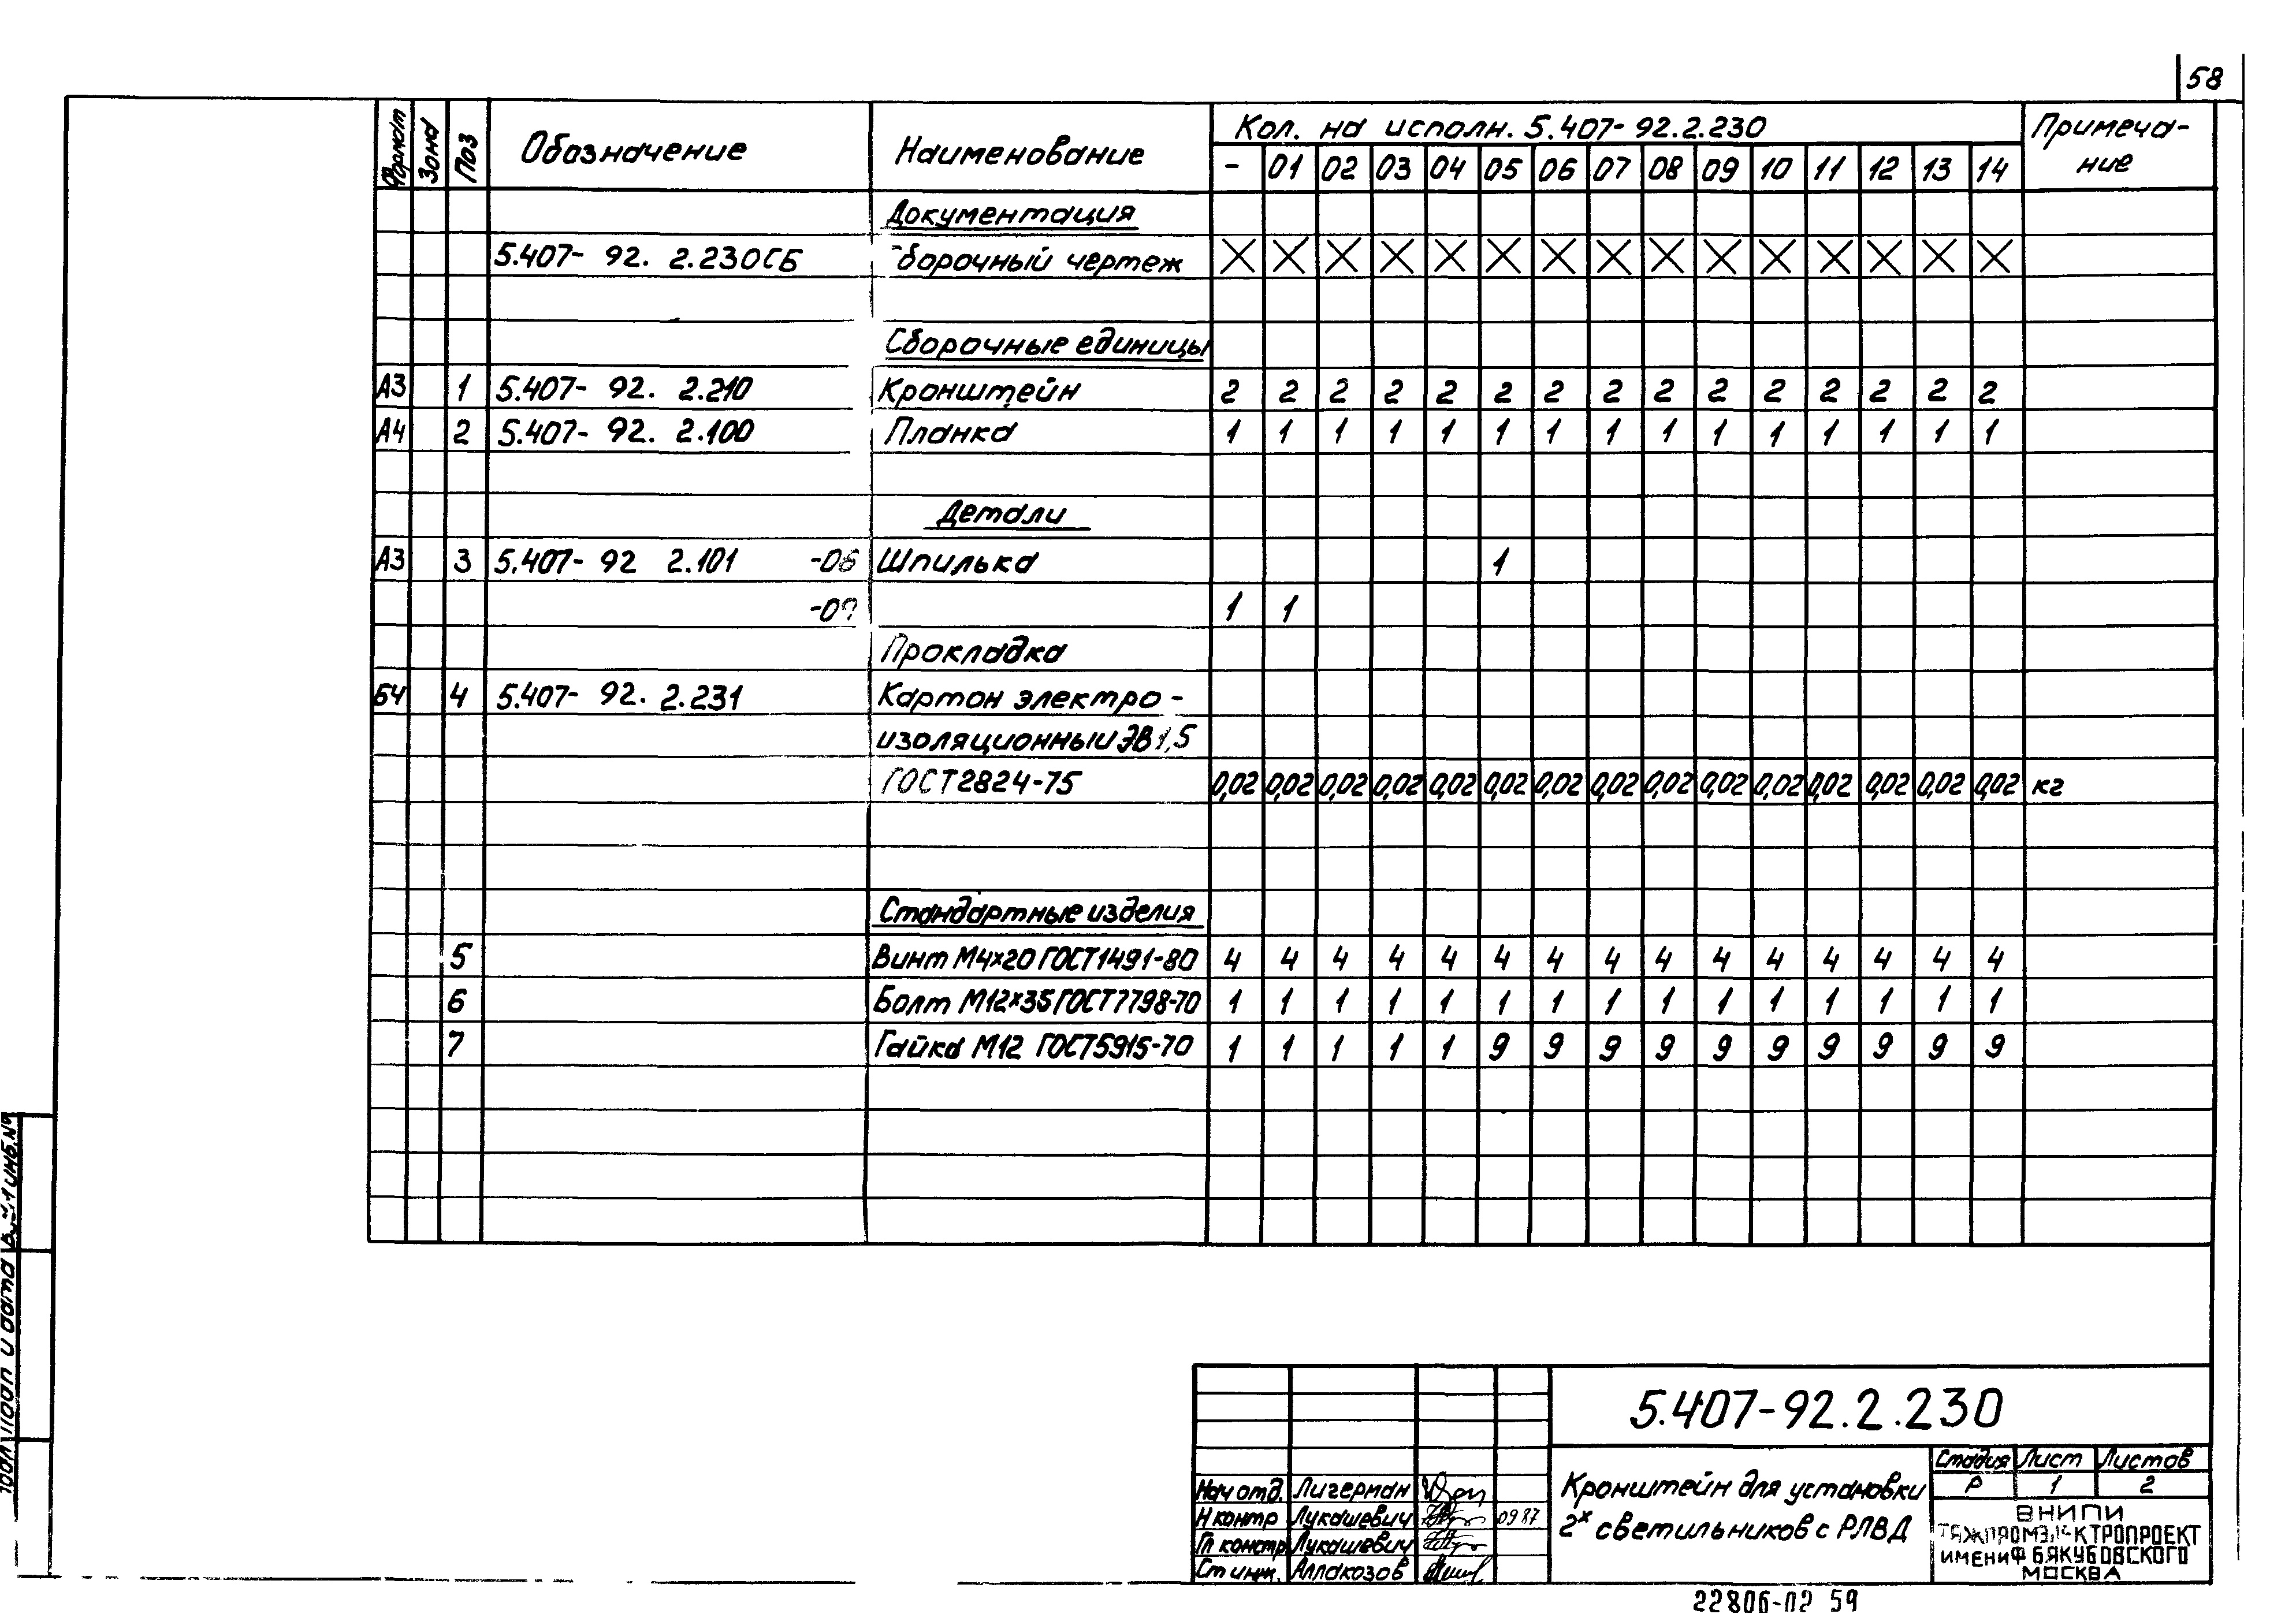 58
Формат Зона Поз Обозначение Наименование Кол. на исполн. 5.407-92.2.230 Примеча-
- 01 02 03 04 05 06 07 08 09 10 11 12 13 14 ние
Документация
5.407- 92. 2.230СБ борочный чертеж X X X X X X X X X X X X X X X
Сборочные единицы
А3 1 5.407- 92. 2.210 Кронштейн 2 2 2 2 2 2 2 2 2 2 2 2 2 2 2
А4 2 5.407- 92. 2.100 Планка 1 1 1 1 1 1 1 1 1 1 1 1 1 1 1
Детали
А3 3 5.407- 92 2.101 -06 Шпилька 1
1 1
Прокладка
БЧ 4 5.407- 92. 2.231 Картон электро -
изоляционный ЭВ 1,5
ГОСТ2824-75 0,02 0,02 0,02 0,02 0,02 0,02 0,02 0,02 0,02 0,02 0,02 0,02 0,02 0,02 0,02 кг
Стандартные изделия
5 Винт М4х20 ГОСТ1491-80 4 4 4 4 4 4 4 4 4 4 4 4 4 4 4
6 Болт М12х35 ГОСТ7798-70 1 1 1 1 1 1 1 1 1 1 1 1 1 1 1
7 Гайка М12 ГОСТ5915-70 1 1 1 1 1 9 9 9 9 9 9 9 9 9 9
5.407-92.2.230
Кронштейн для установки
2х светильников с РЛВД
Стадия Лист Листов
Р 1 2
Нач отд. Лигерман
Н контр Лукашевич 09 87
Гл констр Лукашевич
Ст инж. Аллакозов
ВНИПИ
ТЯЖПРОМЭЛЕКТРОПРОЕКТ
ИМЕНИ Ф Б ЯКУБОВСКОГО
МОСКВА
22806-02 59
и дата
инв.№